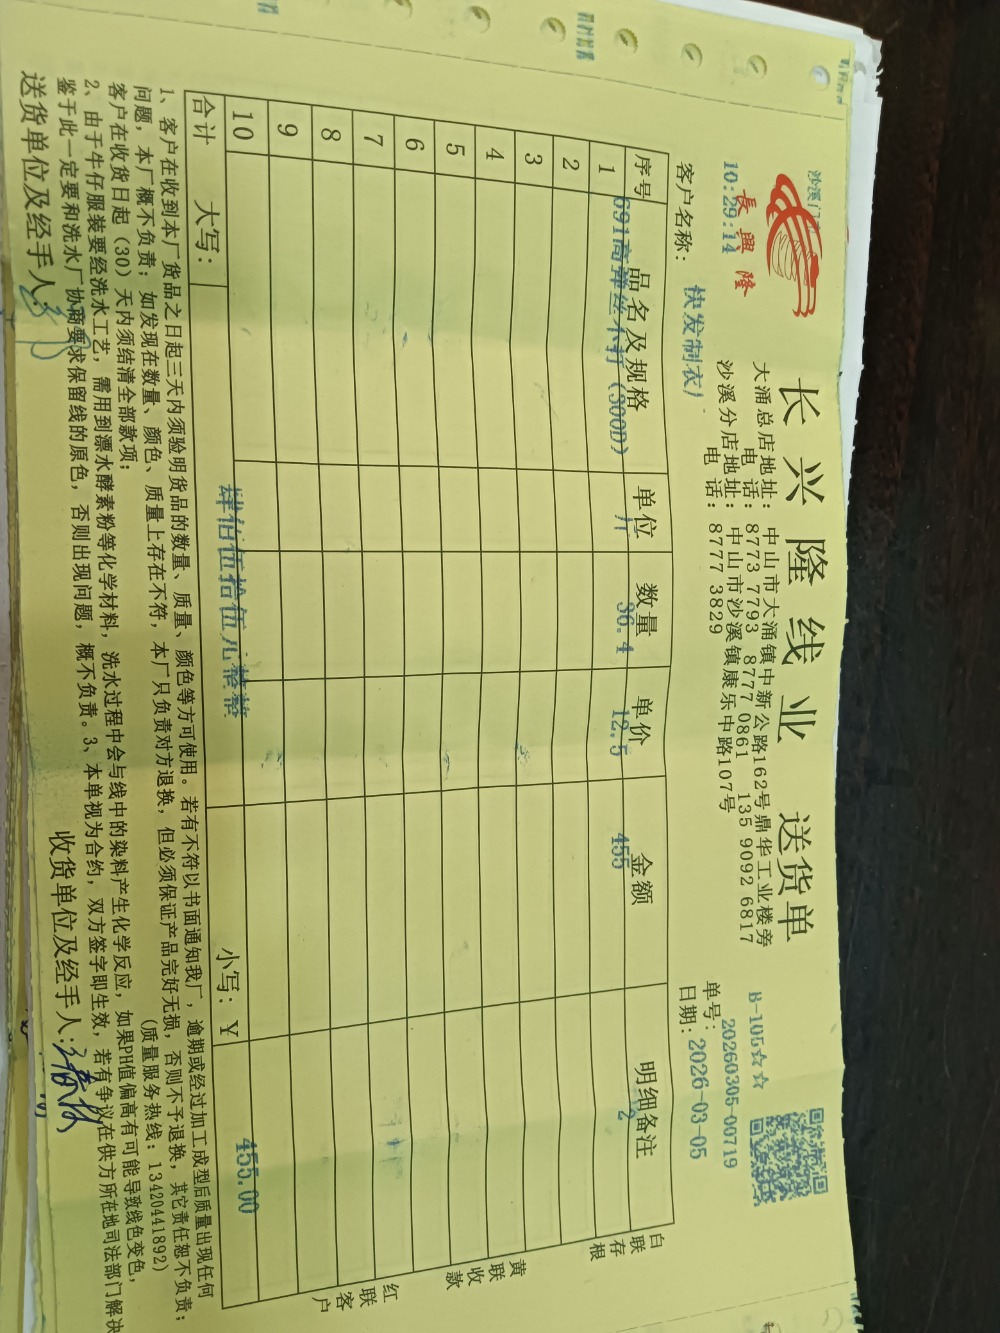 長興隆
长兴隆线业 送货单
大涌总店地址：中山市大涌镇中新公路162号鼎华工业楼旁
电 话：8773 7793 8777 0861 135 9092 6817
沙溪分店地址：中山市沙溪镇康乐中路107号
电 话：8777 3829
沙溪门
10:29:14
B-105☆☆
单号：20260305-00719
客户名称：快发制衣厂
日期：2026-03-05
序号 品名及规格 单位 数量 单价 金额 明细备注
1 691高弹丝不打（300D） 斤 36.4 12.5 455 2
2
3
4
5
6
7
8
9
10
合计 大写：肆佰伍拾伍元整整 小写：￥ 455.00
白联存根
黄联收款
红联客户
1、客户在收到本厂货品之日起三天内须验明货品的数量、质量、颜色等方可使用。若有不符以书面通知我厂，逾期或经过加工成型后质量出现任何
问题，本厂概不负责；如发现在数量、颜色、质量上存在不符，本厂只负责对方退换，但必须保证产品完好无损，否则不予退换，其它责任恕不负责；
客户在收货日起（30）天内须结清全部款项； （质量服务热线：13420441892）
2、由于牛仔服装要经洗水工艺，需用到漂水酵素粉等化学材料，洗水过程中会与线中的染料产生化学反应，如果PH值偏高有可能导致线色变色，
鉴于此一定要和洗水厂协商要求保留线的原色，否则出现问题，概不负责。3、本单视为合约，双方签字即生效，若有争议在供方所在地司法部门解决
送货单位及经手人： 收货单位及经手人：